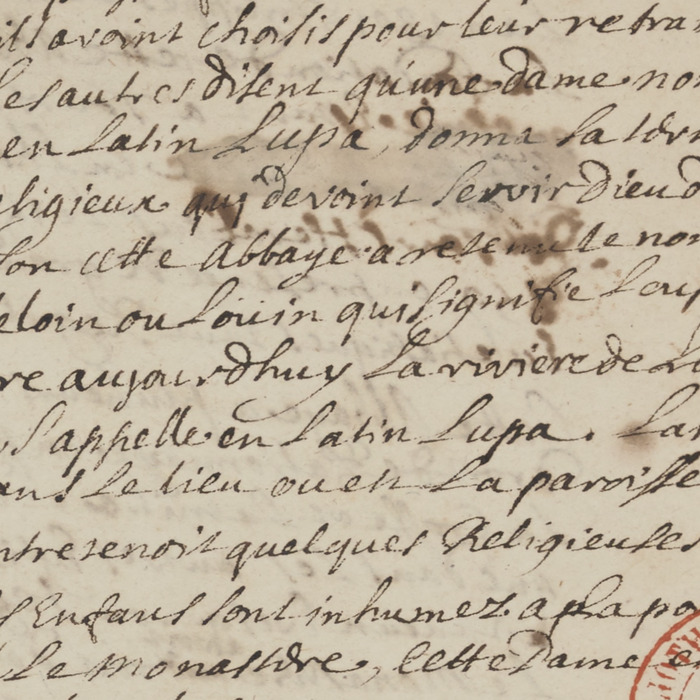 avoint choisis pour leur retra
les autres disent qu'une dame no
en Latin Lupa, donna la terr
eligieux qui devoint servir Dieu d
son cette Abbaye a retenu le nom
eloin ou Louin qui signifie Loup
re aujourdhuy la riviere de
s'appelle en Latin Lupa. La
ans le lieu ou est la paroisse
ntretenoit quelques Religieuses
s Enfans sont inhumez a la po
le monastere, cette Dame